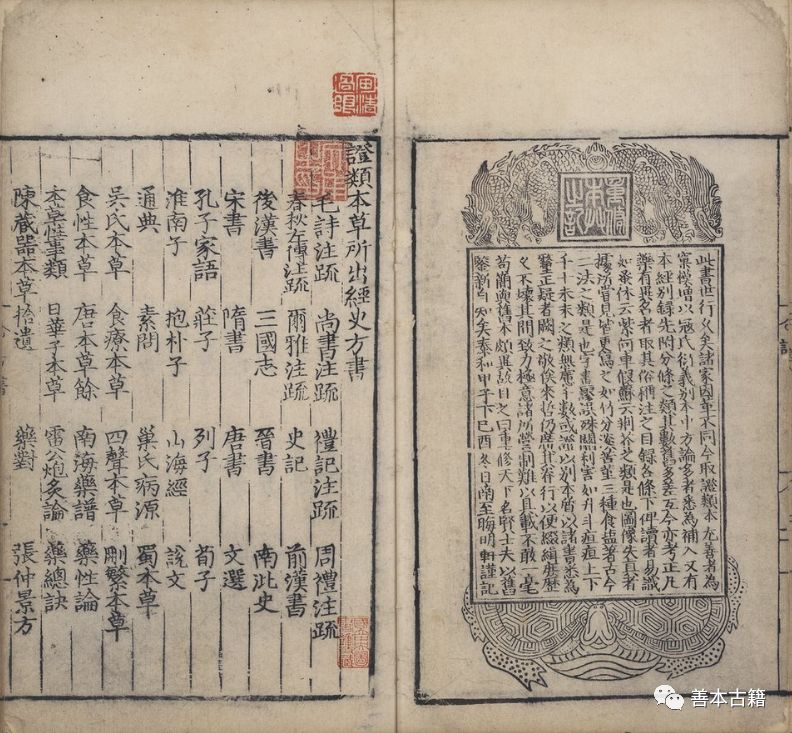 重脩本草之記
此書世行久矣諸家因革不同今取證類本尤善者為
窠模增以寇氏衍義別本中方論多者悉為補入又有
本經別錄先附分條之類其數舊多差互今亦考正凡
藥有異名者取其俗稱注之目錄各條下俾讀者易識
如蚤休云紫河車假蘇云荊芥之類是也圖像失真者
據所嘗見皆更寫之如竹分淡苦堇三種食鹽著古今
二法之類是也字書謬誤殊關利害如升斗疸疽上下
千十未末之類無慮千數或證以別本質以諸書悉為
釐正疑者闕之敬俟來哲仍廣其脊行以便綴緝庶歷
久不壞其間致力極意諸所營制難以具載不敢一毫
苟簡與舊本頗異故目之曰重修天下名賢士夫以舊
鑒新自知矣泰和甲子下己酉冬日南至晦明軒謹記
證類本草所出經史方書
毛詩注疏 尚書注疏 禮記注疏 周禮注疏
春秋左傳注疏 爾雅注疏 史記 前漢書
後漢書 三國志 晉書 南北史
宋書 隋書 唐書 文選
孔子家語 莊子 列子 荀子
淮南子 抱朴子 山海經 說文
通典 素問 巢氏病源 蜀本草
吳氏本草 食療本草 四聲本草 刪繁本草
食性本草 唐本草餘 南海藥譜 藥性論
本草性事類 日華子本草 雷公炮炙論 藥總訣
陳藏器本草拾遺 藥對 張仲景方
善本古籍